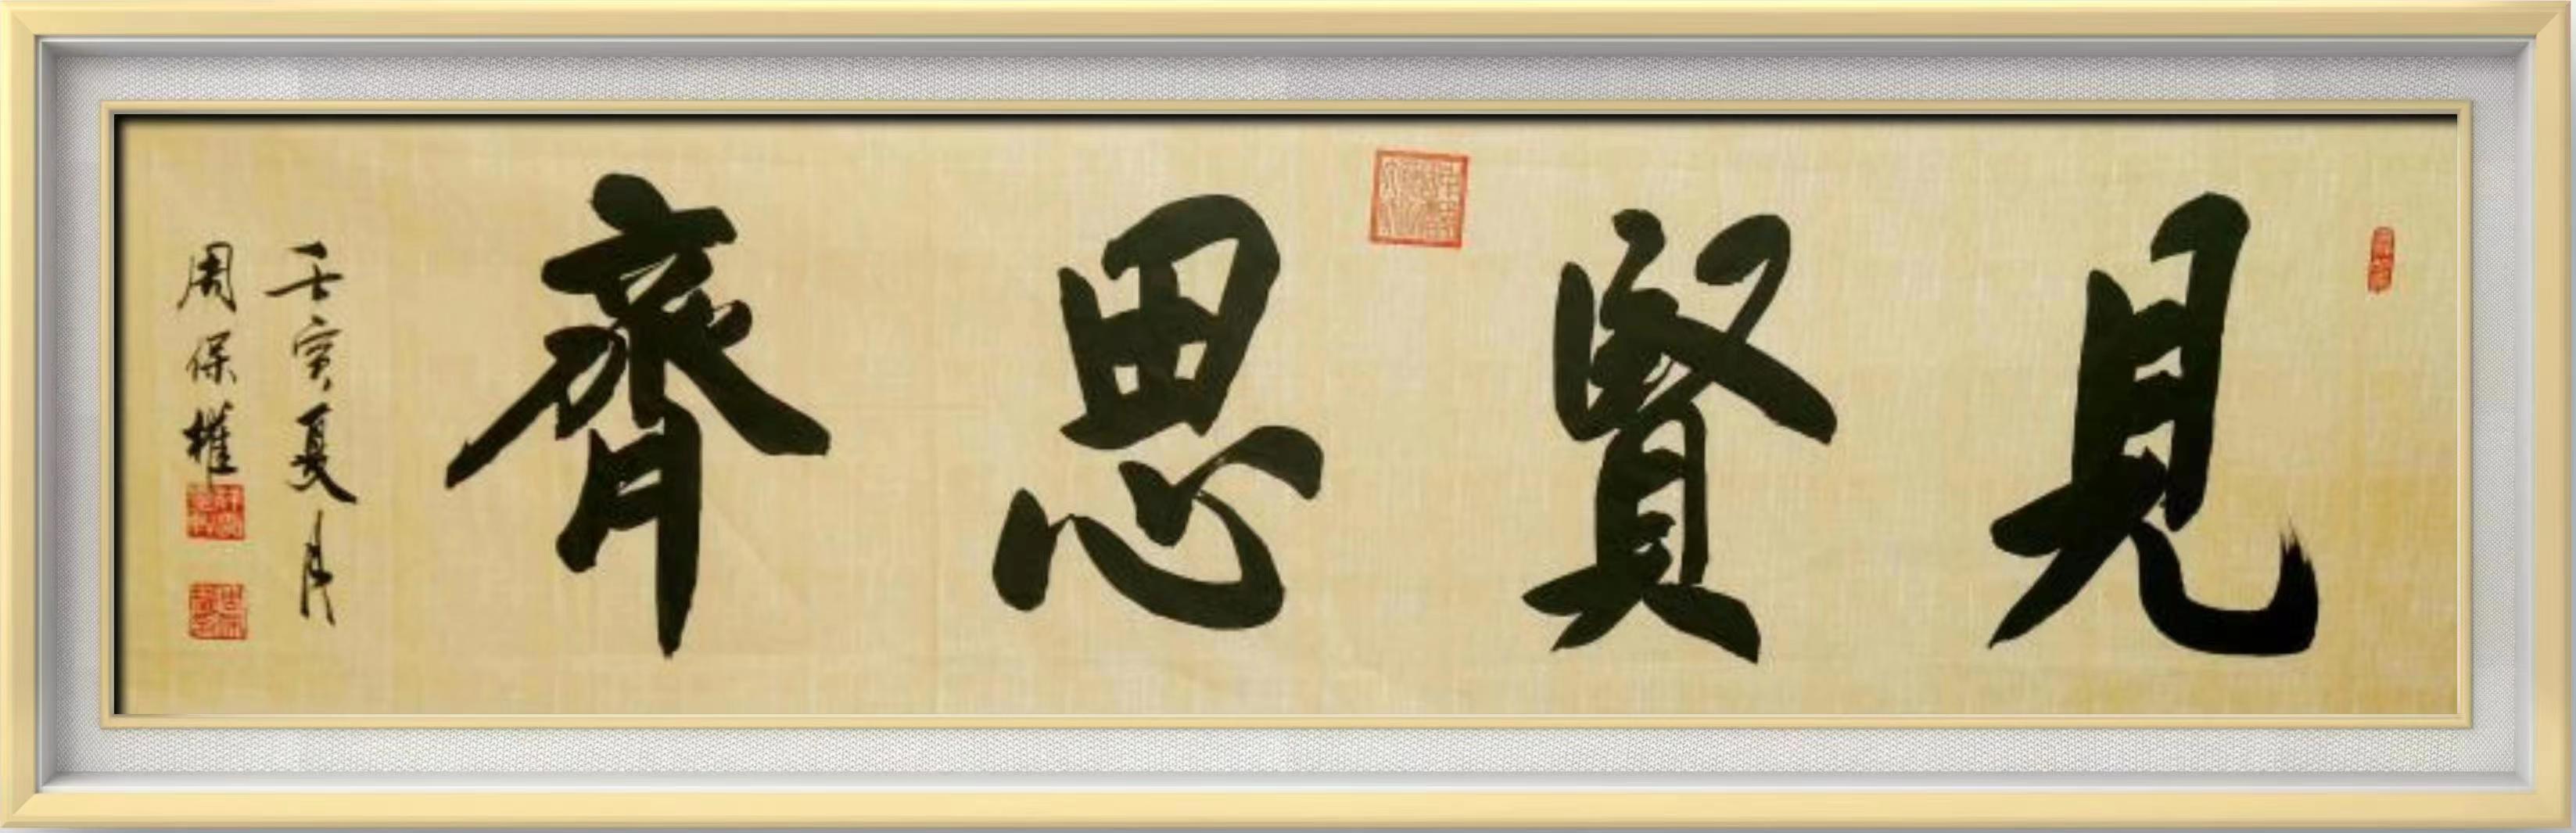 見賢思齊
壬寅夏月
周保權